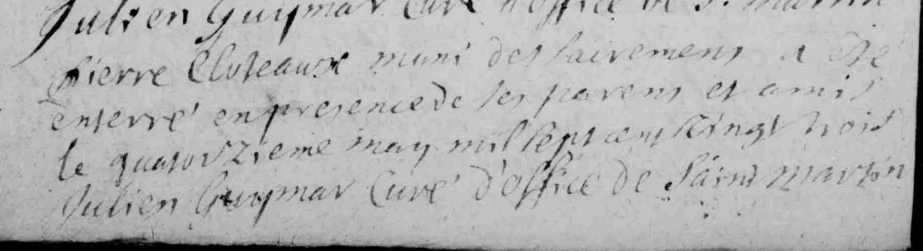 Julien Guymar Curé d'office de S. Martin
Pierre Cluteaux muni des sacremens a été
enterré en presence de ses parens et amis
le quatorzieme may mil sept cent vingt trois
Julien Guymar Curé d'office de Saint Martin